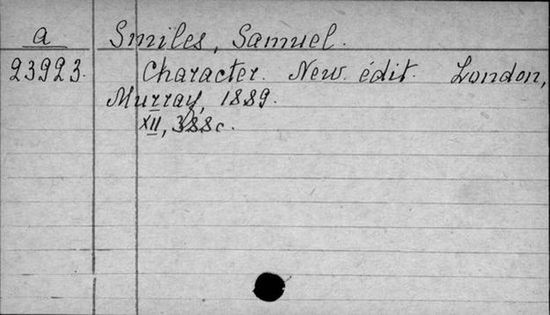 a Smiles, Samuel.
23923. Character. New édit. London,
Murray, 1889.
XII, 388c.